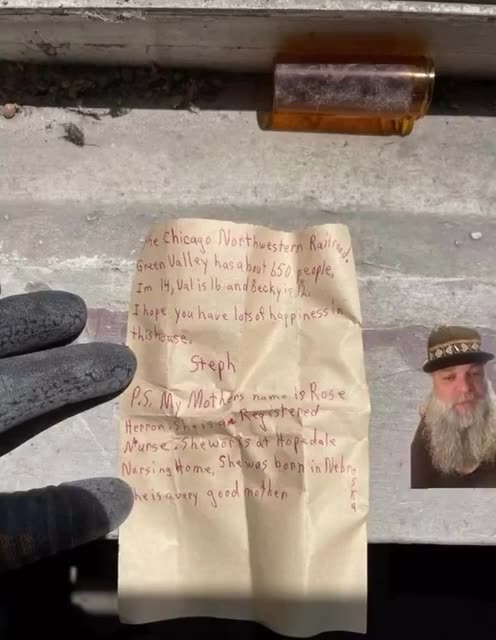 The Chicago Northwestern Railroad.
Green Valley has about 650 people.
Im 14, Val is 16 and Becky is 12.
I hope you have lots of happiness in
this house.
Steph
P.S. My Mothers name is Rose
Herron. She is a Registered
Nurse. She works at Hopedale
Nursing Home, She was born in Nebraska
She is a very good mother